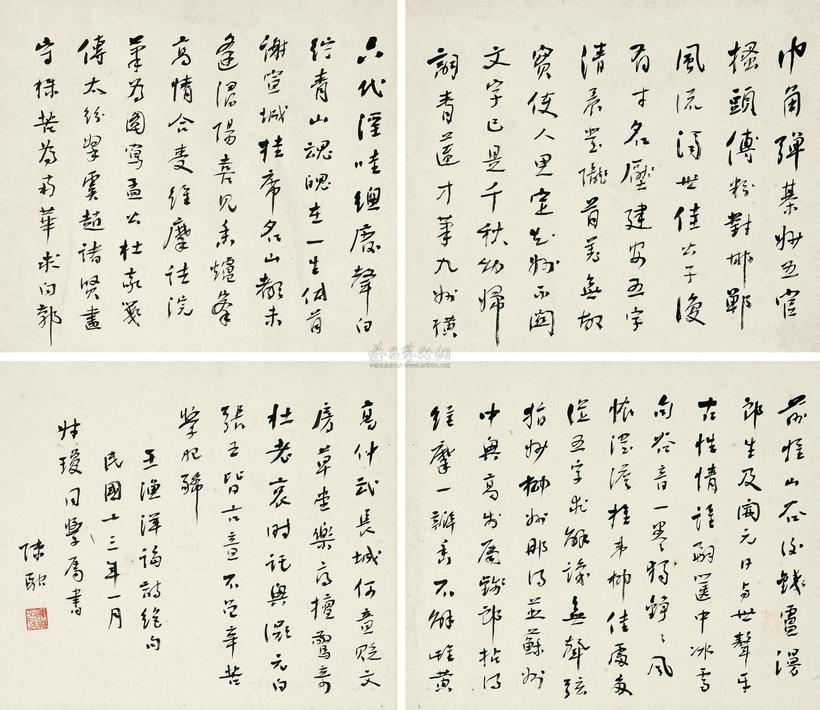 巾角彈棊妙五官
搔頭傅粉對邯鄲
風流濁世佳公子復
有才名壓建安五字
清晨登隴首羌無故
實使人思定知妙不關
文字已是千秋幼婦
詞青蓮才筆九州橫
六代淫哇總廢聲白
紵青山魂魄在一生低首
謝宣城挂席名山都未
逢潯陽喜見香爐峯
高情合受維摩詰浣
筆為圖寫孟公杜家箋
傳太紛挐虞趙諸賢盡
守株苦為南華求向郭
前惟山谷後錢盧漫
郎生及開元日與世聲牙
古性情誰嗣篋中冰雪
句谷音一卷獨錚々風
懷澄澹推韋柳佳處多
從五字求解識無聲弦
指妙柳州那得並蘇州
中興高步屬錢郎拈得
維摩一瓣香不解雌黃
高仲武長城何意貶文
房草堂樂府擅驚奇
杜老哀時託興微元白
張王皆古意不曾辛苦
學妃豨
王漁洋論詩絕句
民國十三年一月
瓊同學屬書
陳融
www.artron.net